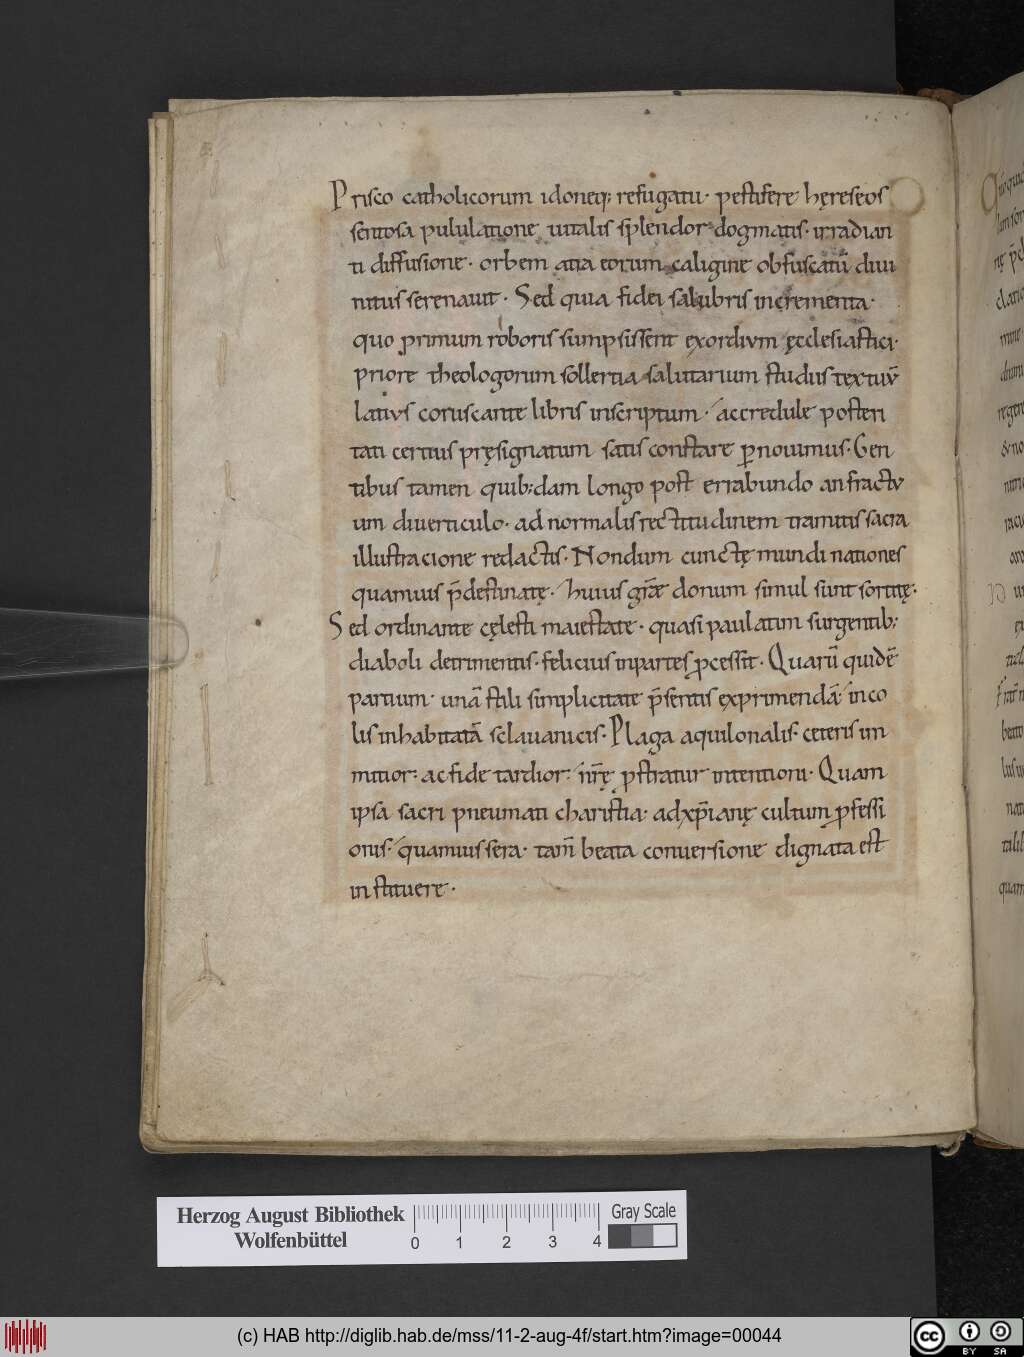 Prisco catholicorum idoneq; refugatu· pestifere hęreseos
sentosa pululatione uitalis splendor dogmatis· irradian
ti diffusione· orbem atra eorum caligine obfuscatū diui
nitus serenauit· Sed quia fidei salubris incrementa·
quo primum roboris sumpsissent exordivm ęcclesiastici·
priore theologorum sollertia salutarium studiis textuū
lativs coruscante libris inscriptum· accredule posteri
tati certius pręsignatum satis constare ꝑnouimus· Gen
tibus tamen quib;dam longo post errabundo anfractv
um diuerticulo· ad normalis rectitudinem tramitis sacra
illustracione redactis· Nondum cunctę mundi nationes
quamuis p̄destinatę· huius gr̄ę dorum simul sunt sortitę·
Sed ordinante cęlesti maiestate· quasi paulatim surgentib;
diaboli detrimentis· felicius inpartes ꝓcessit· Quarū quidē
partium· unā stili simplicitate p̄sentis exprimendā· inco
lis inhabitatā sclauanicis· Plaga aquilonalis· ceteris in
mitior: ac fide tardior: nr̄ę p̱stratur intentioni· Quam
ipsa sacri pneumati charistia· adxp̄ianę cultum ꝓfessi
onis· quamuis sera· tam̄ beata conuersione dignata est
instituere·
Herzog August Bibliothek
Wolfenbüttel
0 1 2 3 4
Gray Scale
(c) HAB http://diglib.hab.de/mss/11-2-aug-4f/start.htm?image=00044
cc BY SA